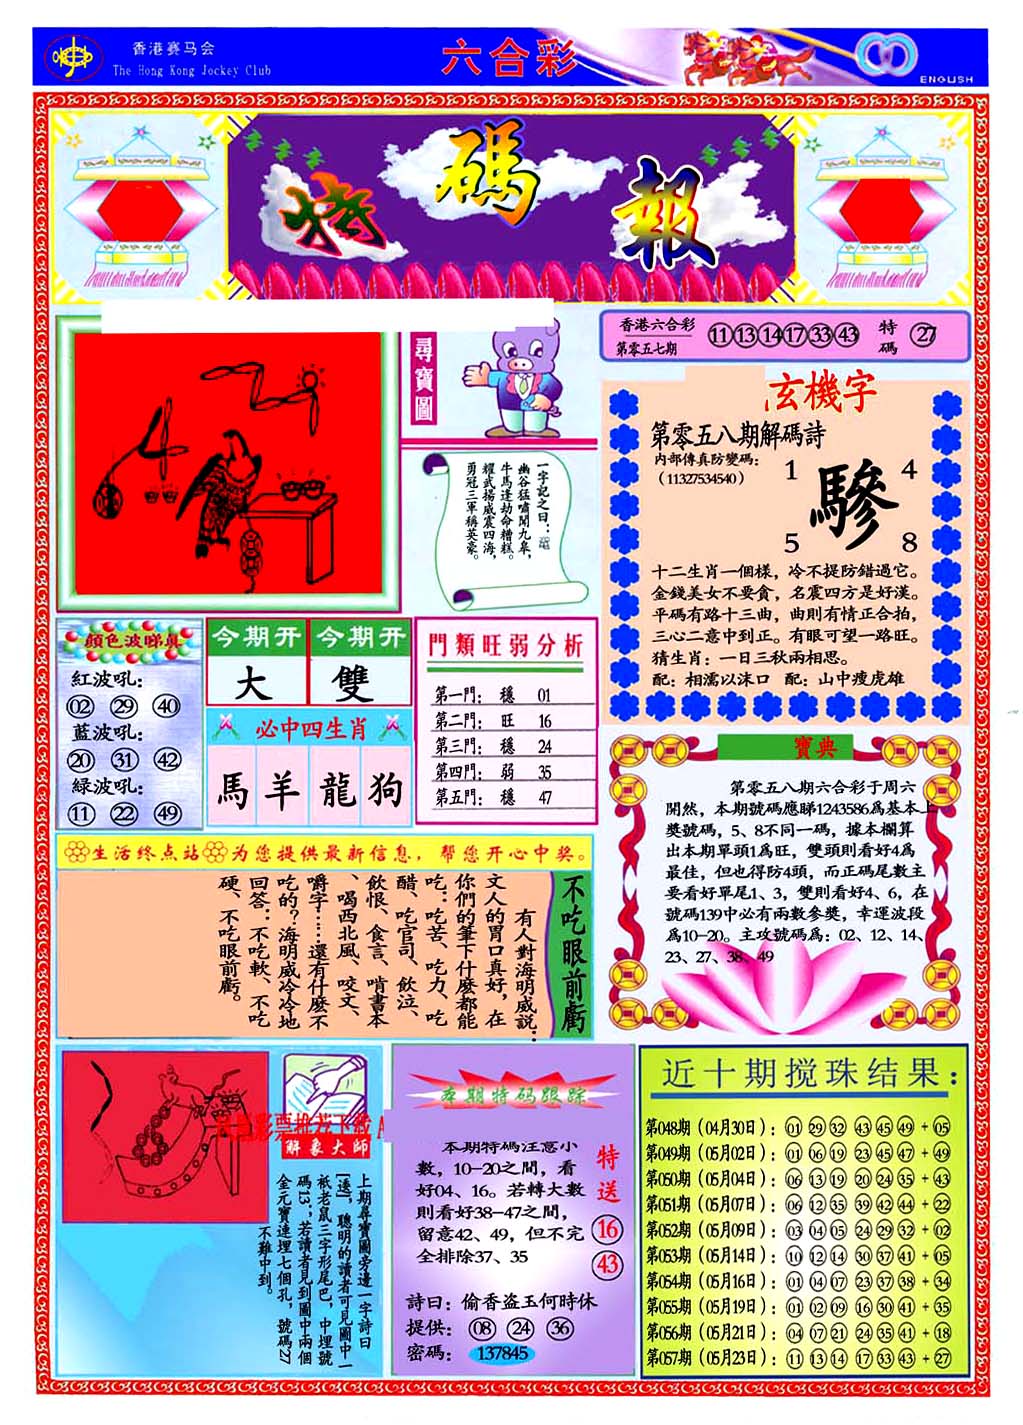 香港赛马会
The Hong Kong Jockey Club
六合彩
ENGLISH
特碼報
尋寶圖
香港六合彩
第零五七期
11 13 14 17 33 43
特碼
27
一字記之曰：
幽谷猛嘯聞九皋，
牛馬逢劫命糟糕。
耀武揚威震四海，
勇冠三軍稱英豪。
玄機字
第零五八期解碼詩
内部傳真防變碼：
（11327534540）
1
4
驂
5
8
十二生肖一個樣，冷不提防錯過它。
金錢美女不要貪，名震四方是好漢。
平碼有路十三曲，曲則有情正合拍，
三心二意中到正。有眼可望一路旺。
猜生肖：一日三秋兩相思。
配：相濡以沫口 配：山中瘦虎雄
顏色波睇真
紅波吼：
02 29 40
藍波吼：
20 31 42
緑波吼：
11 22 49
今期开
今期开
大
雙
必中四生肖
馬 羊 龍 狗
門類旺弱分析
第一門： 穩 01
第二門： 旺 16
第三門： 穩 24
第四門： 弱 35
第五門： 穩 47
寶典
第零五八期六合彩于周六
開然，本期號碼應睇1243586爲基本上
獎號碼，5、8不同一碼，據本欄算
出本期單頭1爲旺，雙頭則看好4爲
最佳，但也得防4頭，而正碼尾數主
要看好單尾1、3，雙則看好4、6，在
號碼139中必有兩數參獎，幸運波段
爲10-20。主攻號碼爲：02、12、14、
23、27、38、49
生活终点站 为您提供最新信息，帮您开心中奖。
不吃眼前虧
有人對海明威說：
文人的胃口真好，在
你們的筆下什麼都能
吃：吃苦、吃力、吃
醋、吃官司、飲泣、
飲恨、食言、啃書本
、喝西北風、咬文、
嚼字……還有什麼不
吃的？海明威冷冷地
回答：不吃軟、不吃
硬、不吃眼前虧。
解象大師
上期尋寶圖旁邊一字詩曰
，聰明的讀者可見圖中一
衹老鼠三字形尾巴，中埋號
碼13；若讀者見到圖中兩個
金元寶連埋七個孔，號碼27
不難中到。
本期特码跟踪
本期特碼注意小
數，10-20之間，看
好04、16。若轉大數
則看好38-47之間，
留意42、49，但不完
全排除37、35
特送
16
43
詩曰：偷香盜玉何時休
提供： 08 24 36
密碼： 137845
近十期搅珠结果：
第048期（04月30日）：01 29 32 43 45 49 + 05
第049期（05月02日）：01 06 19 23 45 47 + 49
第050期（05月04日）：06 13 19 20 24 35 + 43
第051期（05月07日）：06 12 35 39 42 44 + 22
第052期（05月09日）：03 04 05 24 29 32 + 02
第053期（05月14日）：10 12 14 30 37 41 + 05
第054期（05月16日）：01 04 07 23 37 38 + 34
第055期（05月19日）：01 02 09 16 30 41 + 35
第056期（05月21日）：04 07 21 24 35 41 + 18
第057期（05月23日）：11 13 14 17 33 43 + 27